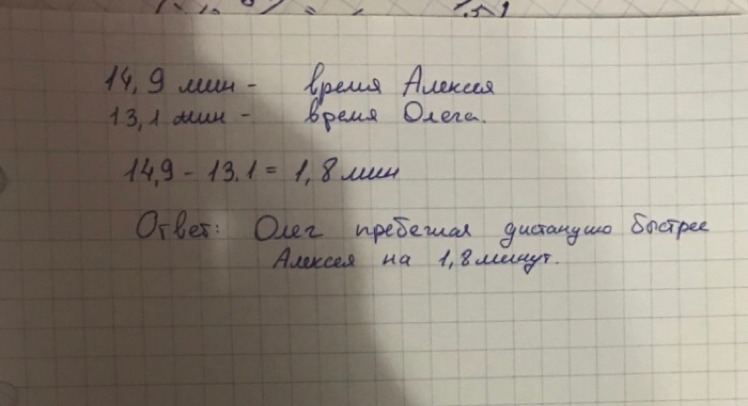 14,9 мин - время Алексея
13,1 мин - время Олега.
14,9 - 13.1 = 1,8 мин
Ответ: Олег пребежал дистанцию быстрее
Алексея на 1,8 минут.